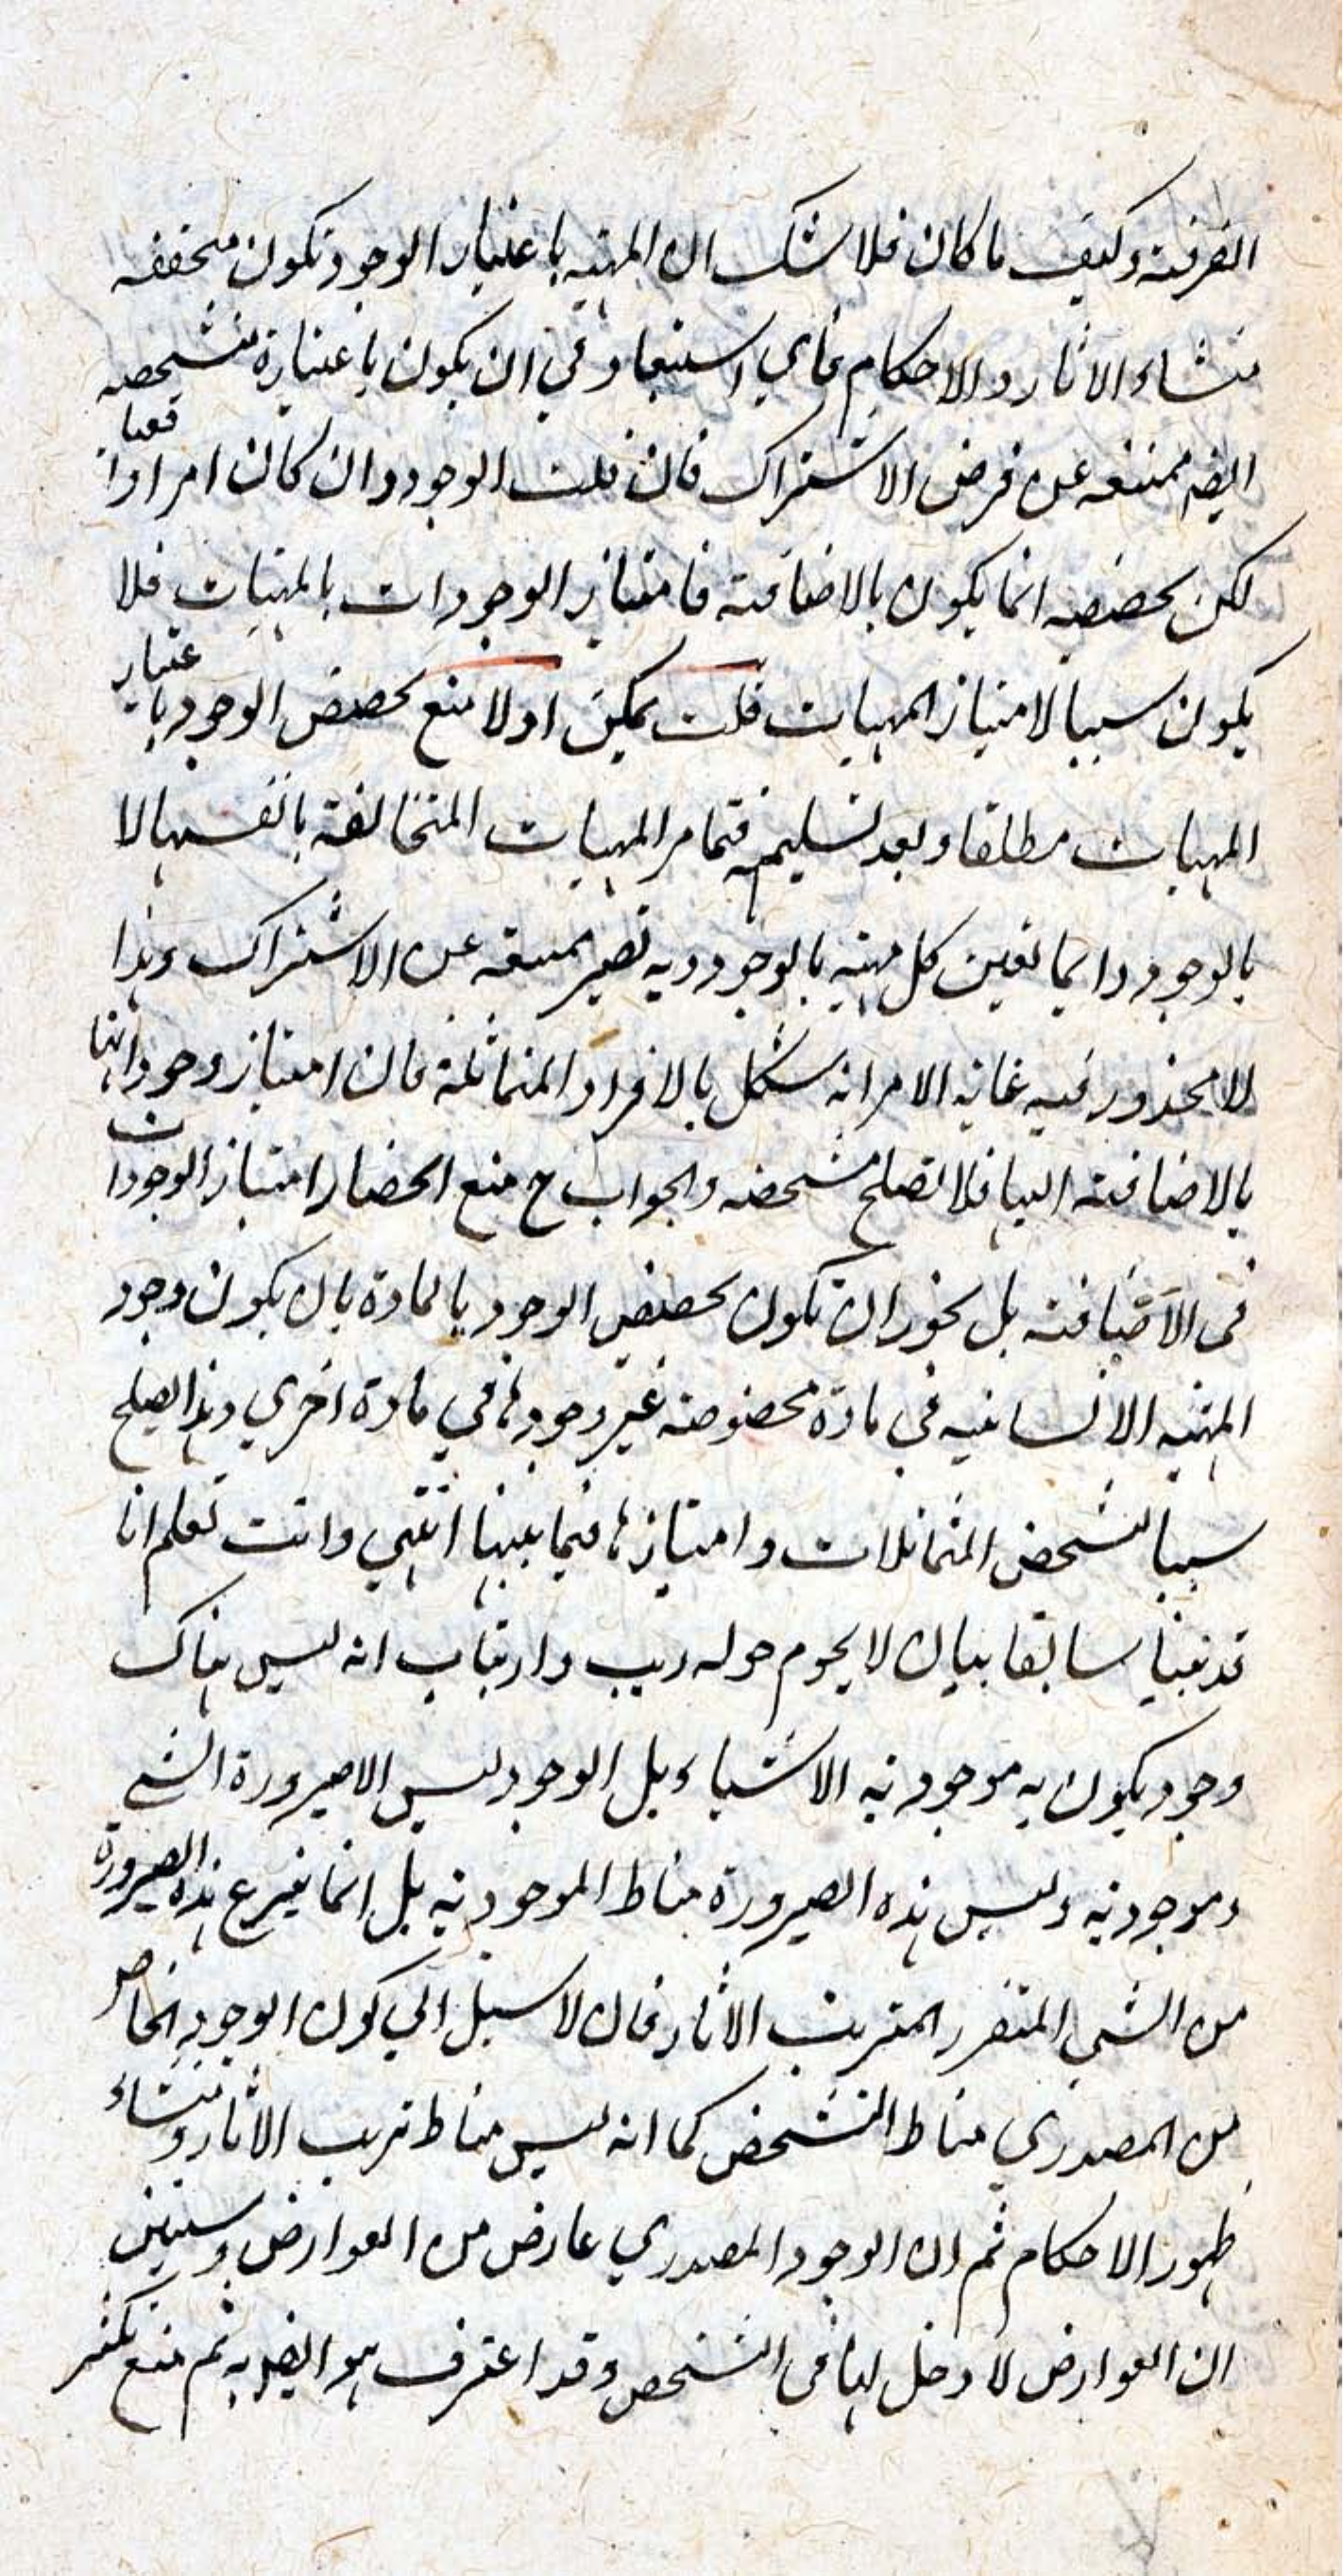 الصرفية وكيف ما كان فلا شك ان المهية باعتبار الوجود تكون متحققه
منشاء الآثار والاحكام فاي استبعاد في ان يكون باعتباره متشخصه
ايضا ممتنعه عن فرض الاشتراك فان قلت الوجود وان كان امرا واقعيا
لكن تحصصه انما يكون بالاضافة فامتياز الوجودات بالمهيات فلا
يكون سببا لامتياز المهيات قلت يمكن اولا منع تحصص الوجود باعتبار
المهيات مطلقا وبعد تسليمه فتمايز المهيات المتخالفة بانفسها لا
بالوجود وانما تعين كل مهية بالوجود وبه تصير ممتنعه عن الاشتراك وهذا
لا محذور فيه غاية الامر انه يشكل بالافراد المتماثلة فان امتياز وجوداتها
بالاضافة اليها فلا تصلح مشخصه والجواب ح منع انحصار امتياز الوجودات
في الاضافة بل يجوز ان تكون تحصص الوجود بالمادة بان يكون وجود
المهية الانسانية في مادة مخصوصة غير وجودها في مادة اخري وهذا يصلح
سببا لتشخص المتماثلات وامتيازها فيما بينها انتهي وانت تعلم انا
قد بينا سابقا ببيان لا يحوم حوله ريب وارتياب انه ليس هناك
وجود يكون به موجودية الاشياء بل الوجود ليس الا صيرورة الشي
وموجوديته وليس هذه الصيرورة مناط الموجودية بل انما يتفرع هذه الصيرورة
من الشي المتقرر المترتب الآثار فان لا سبيل الي كون الوجود الخاص
من المصدري مناط التشخص كما انه ليس مناط ترتب الآثار ومنشاء
ظهور الاحكام ثم ان الوجود المصدري عارض من العوارض وستيقن
ان العوارض لا دخل لها في التشخص وقد اعترف هو ايضا به ثم منع تكثر